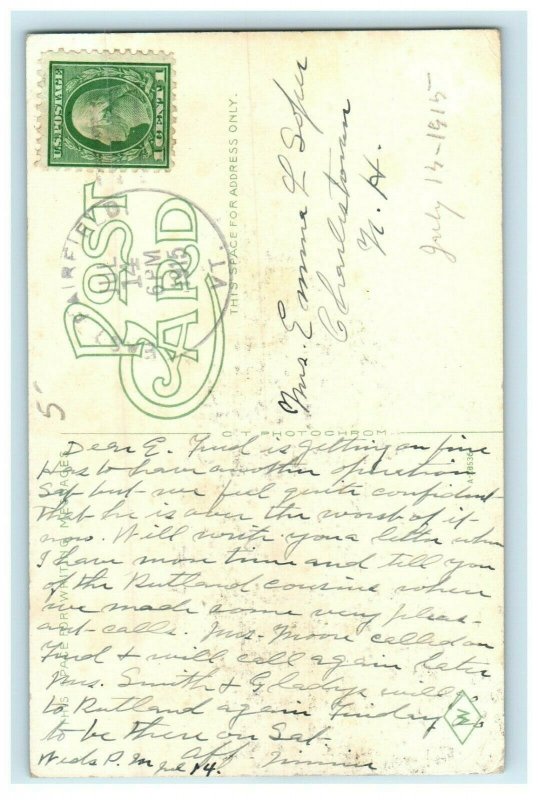 U.S. POSTAGE
1 CENT 1
POST CARD
FAIRFIELD
JUL 14 6PM 1915
VT.
THIS SPACE FOR ADDRESS ONLY.
Mrs. Emma L Soper
Charlestown
N. H.
July 13-1915
5
C.T. PHOTOCHROM
THIS SPACE FOR WRITING MESSAGES
Dear E. Fred is getting on fine
Has to have another operation
Sat but we feel quite confident
that he is over the worst of it
now. Will write you a letter when
I have more time and tell you
of the Rutland cousins where
we made some very pleas-
ant calls. Mrs. Moore called on
Fred & will call again later
Mrs. Smith & Gladys will
to Rutland again Friday
to be there on Sat.
Weds P.M Jul 14. Aff.
W